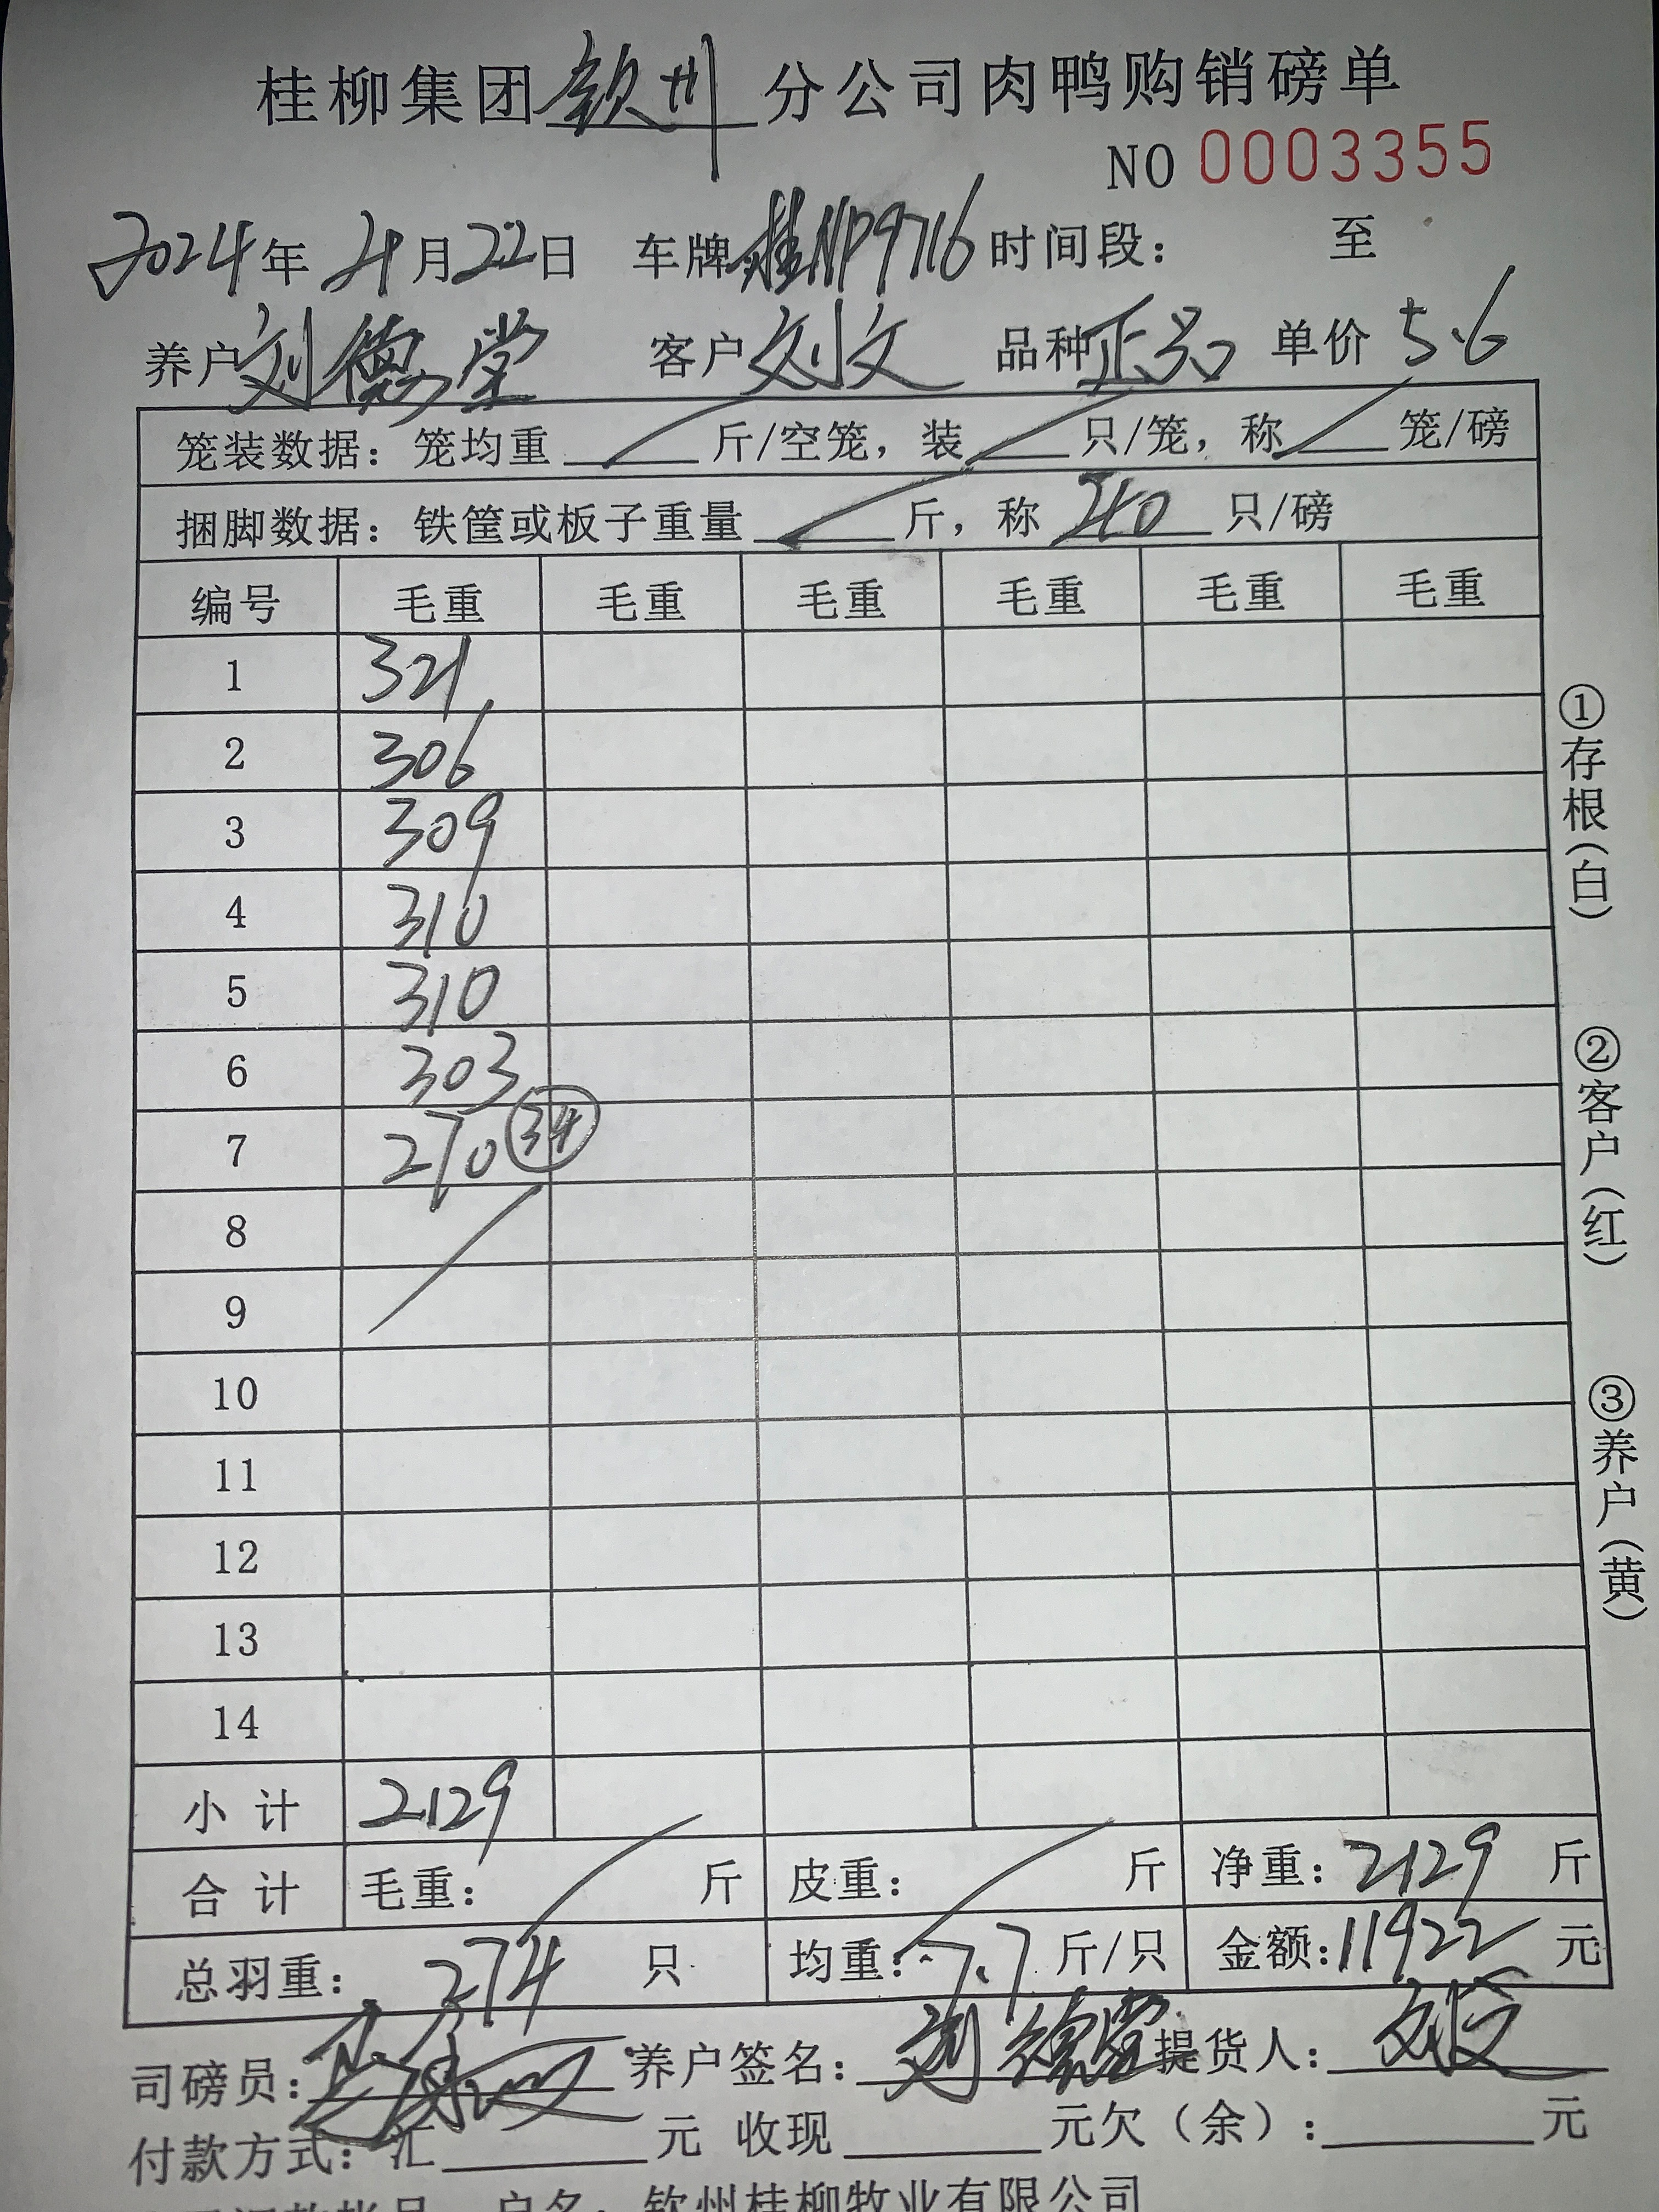 桂柳集团钦州分公司肉鸭购销磅单
NO 0003355
2024年4月22日 车牌桂NP9716时间段： 至
养户刘德堂 客户刘文 品种正品 单价5.6
笼装数据：笼均重 斤/空笼，装 只/笼，称 笼/磅
捆脚数据：铁筐或板子重量 斤，称 40 只/磅
编号 毛重 毛重 毛重 毛重 毛重 毛重
1 321
2 306
3 309
4 310
5 310
6 303
7 270 34
8
9
10
11
12
13
14
小计 2129
合计 毛重： 斤 皮重： 斤 净重：2129 斤
总羽重：274 只 均重：7.7 斤/只 金额：11922 元
司磅员： 养户签名：刘德堂 提货人：刘文
付款方式：汇 元 收现 元欠（余）： 元
户名：钦州桂柳牧业有限公司
①存根（白）
②客户（红）
③养户（黄）